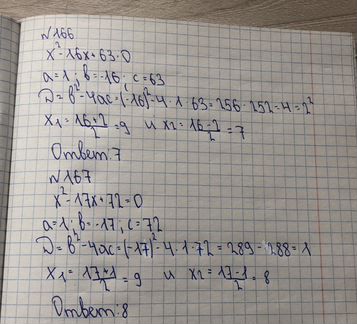 №166
x²-16x+63=0
a=1; b=-16; c=63
D=b²-4ac=(-16)²-4·1·63=256-252=4=2²
x1=16+2/2=9 и x2=16-2/2=7
Ответ:7
№167
x²-17x+72=0
a=1; b=-17; c=72
D=b²-4ac=(-17)²-4·1·72=289-288=1
x1=17+1/2=9 и x2=17-1/2=8
Ответ:8